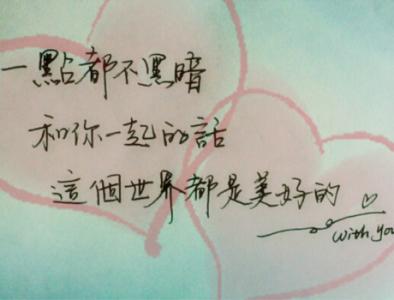 一點都不黑暗
和你一起的話
這個世界都是美好的
with you